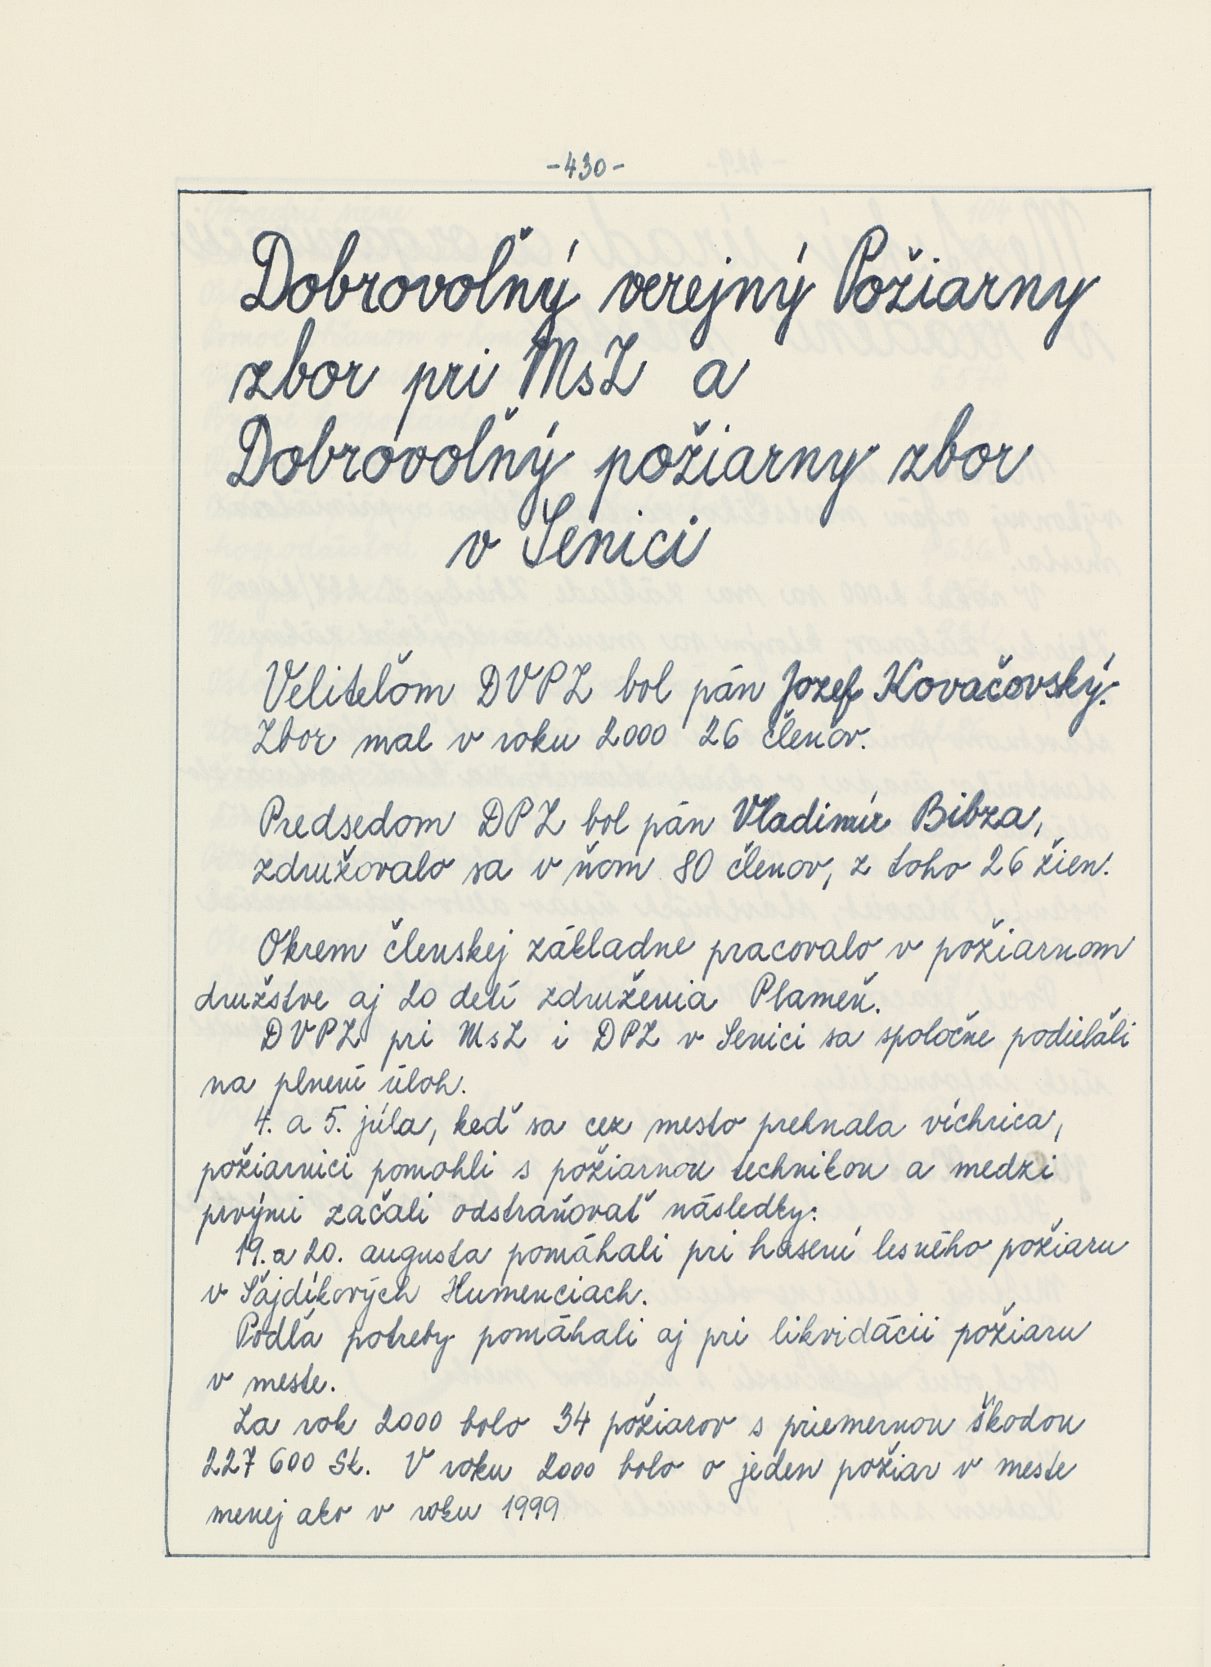 -430-
Dobrovoľný verejný Požiarny
zbor pri MsZ a
Dobrovoľný požiarny zbor
v Senici
Veliteľom DVPZ bol pán Jozef Kovačovský.
Zbor mal v roku 2000 26 členov.
Predsedom DPZ bol pán Vladimír Bibza,
združovalo sa v ňom 80 členov, z toho 26 žien.
Okrem členskej základne pracovalo v požiarnom
družstve aj 20 detí združenia Plameň.
DVPZ pri MsZ i DPZ v Senici sa spoločne podieľali
na plnení úloh.
4. a 5. júla, keď sa cez mesto prehnala víchrica,
požiarnici pomohli s požiarnou technikou a medzi
prvými začali odstraňovať následky.
19. a 20. augusta pomáhali pri hasení lesného požiaru
v Šajdíkových Humenciach.
Podľa potreby pomáhali aj pri likvidácii požiaru
v meste.
Za rok 2000 bolo 34 požiarov s priemernou škodou
227 600 Sk. V roku 2000 bolo o jeden požiar v meste
menej ako v roku 1999